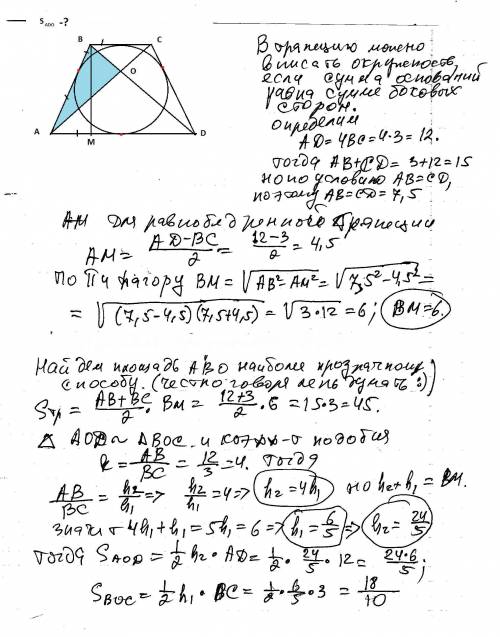 S ADO -?
B C
O
A M D
В трапецию можно
вписать окружность,
если сумма оснований
равна сумме боковых
сторон.
Определим
AD=4BC=4·3=12.
Тогда AB+CD=3+12=15
но по условию AB=CD,
поэтому AB=CD=7,5
AM для равнобедренной трапеции
AM= (AD-BC)/2 = (12-3)/2 = 4,5
По Пифагору BM=√(AB²-AM²)=√(7,5²-4,5²)=
=√((7,5-4,5)(7,5+4,5))=√(3·12)=6; BM=6.
Найдем площадь ABO наиболее прозрачному
способу. (честно говоря лень думать :))
Sтр= (AB+BC)/2 · BM= (12+3)/2 · 6=15·3=45.
Δ AOD~ΔBOC и коэфф-т подобия
k= AB/BC = 12/3 =4. Тогда
AB/BC = h2/h1 => h2/h1 =4=> h2=4h1 но h2+h1=BM.
значит 4h1+h1=5h1=6=> h1= 6/5 => h2= 24/5
тогда SAOD= 1/2 h2·AD= 1/2 · 24/5 ·12= 24·6/5 ;
SBOC= 1/2 h1·BC= 1/2 · 6/5 ·3 = 18/10